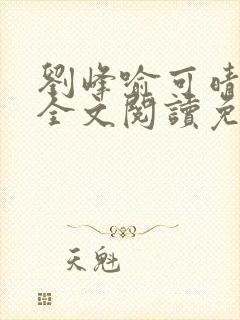 劉峰喻可晴
全文閱讀免
天魁